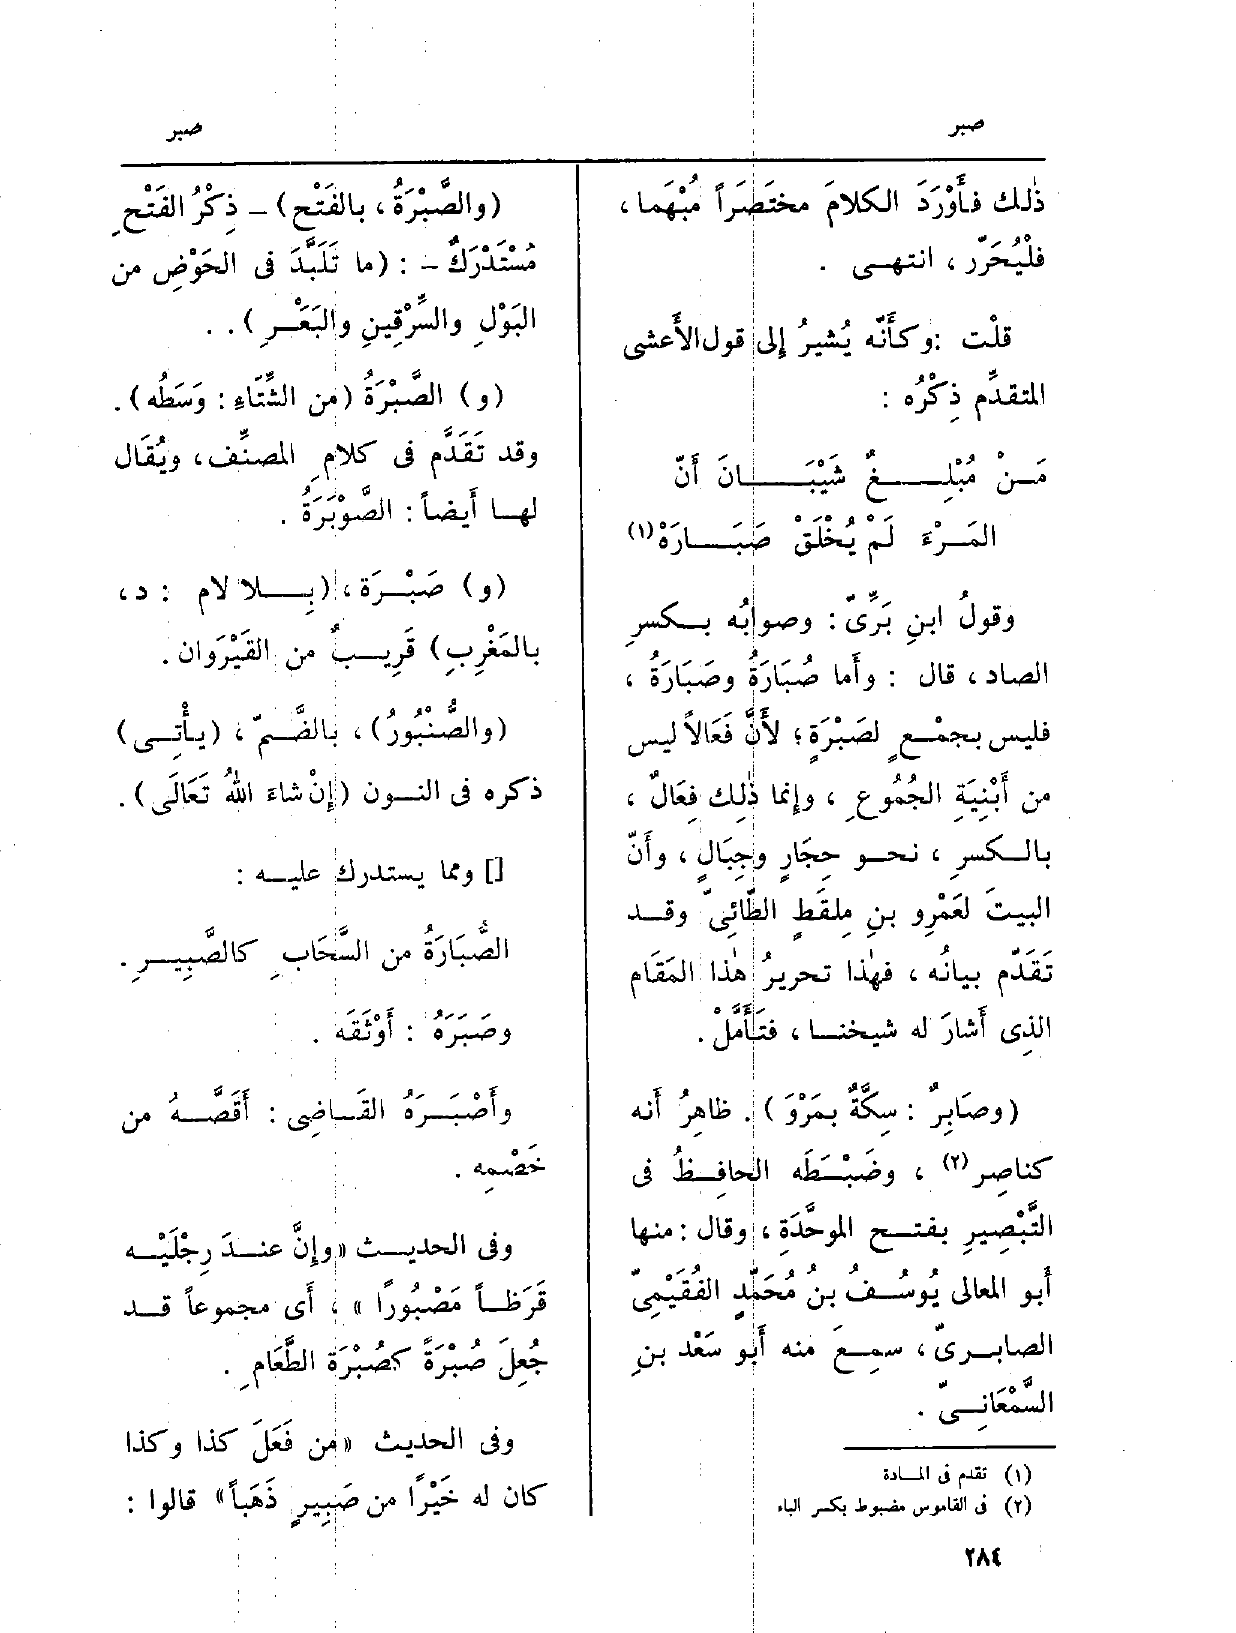 صبر
صبر
ذٰلك فأَوْرَدَ الكلامَ مختَصَراً مُبْهَما ،
فلْيُحَرّر ، انتهــى .
قلْت : وكأَنّه يُشيرُ إِلى قول الأَعشى
المتقدِّم ذِكْرُه :
مَــنْ مُبْلِــــغٌ شَيْبَــــانَ أَنّ
المَــرْءَ لَمْ يُخْلَقْ صَبَــــارَهْ (١)
وقولُ ابنِ بَرِّىّ : وصوابُه بــكسرِ
الصاد ، قال : وأَما صُبَارَةُ وصَبَارَةُ ،
فليس بجمْــعٍ لصَبْرَةٍ ؛ لأَنَّ فَعَالاً ليس
من أَبْنِيَةِ الجُمُوعِ ، وإِنما ذٰلِك فِعَالٌ ،
بالــكسرِ ، نحــو حِجَارٍ وجِبَالٍ ، وأَنّ
البيتَ لعَمْرِو بنِ مِلقَطٍ الطّائِىّ وقــد
تَقَدّم بيانُه ، فهٰذا تحريرُ هٰذا المَقَام
الذِى أَشارَ له شيخنــا ، فتَأَمَّلْ .
(وصَابِرٌ : سِكَّةٌ بمَرْوَ ) . ظاهِرُ أَنه
كناصِر (٢) ، وضَبْــطَه الحافِــظُ فى
التَّبْصِيرِ بفتــح الموحَّدَةِ ، وقال : منها
أَبو المعالى يُوسُــف بن مُحَمّدٍ الفُقَيْمِىّ
الصابــرىّ ، سمِــعَ منه أَبو سَعْد بنِ
السَّمْعَانِــىّ .
(١) تقدم فى المــادة
(٢) فى القاموس مضبوط بكسر الباء
٢٨٤
(والصَّبْرَةُ ، بالفَتْحِ) – ذِكْرُ الفَتْحِ
مُسْتَدْرَكٌ – : (ما تَلَبَّدَ فى الحَوْضِ من
البَوْلِ والسِّرْقِينِ والبَعَــرِ ) . .
(و) الصَّبْرَةُ (من الشِّتَاءِ : وَسَطُه) .
وقد تَقَدَّم فى كلامِ المصنِّف، ويُقَال
لهــا أَيضاً : الصَّوْبَرَةُ .
(و) صَبْــرَة ، (بِــــلا لام : د ،
بالمَغْرِبِ) قَرِيــبٌ من القَيْرَوان .
(والصُّنْبُورُ) ، بالضَّــمّ ، (يأْتِــى)
ذكره فى النــون (إِنْ شاءَ اللهُ تَعَالَى) .
[] ومما يستدرك عليــه :
الصُّبَارَةُ من السَّحَابِ كالصَّبِيــرِ .
وصَبَرَهُ : أَوْثَقَه .
وأَصْبَــرَهُ القَــاضِى : أَقَصَّــهُ من
خَصْمِه .
وفى الحديــث «وإِنَّ عنــدَ رِجْلَيْــه
قَرَظــاً مَصْبُورًا » ، أَى مجموعاً قــد
جُعِلَ صُبْرَةً كصُبْرَةِ الطَّعَامِ .
وفى الحديث «من فَعَلَ كذا وكذا
كان له خَيْرًا من صَبِيرٍ ذَهَباً» قالوا :